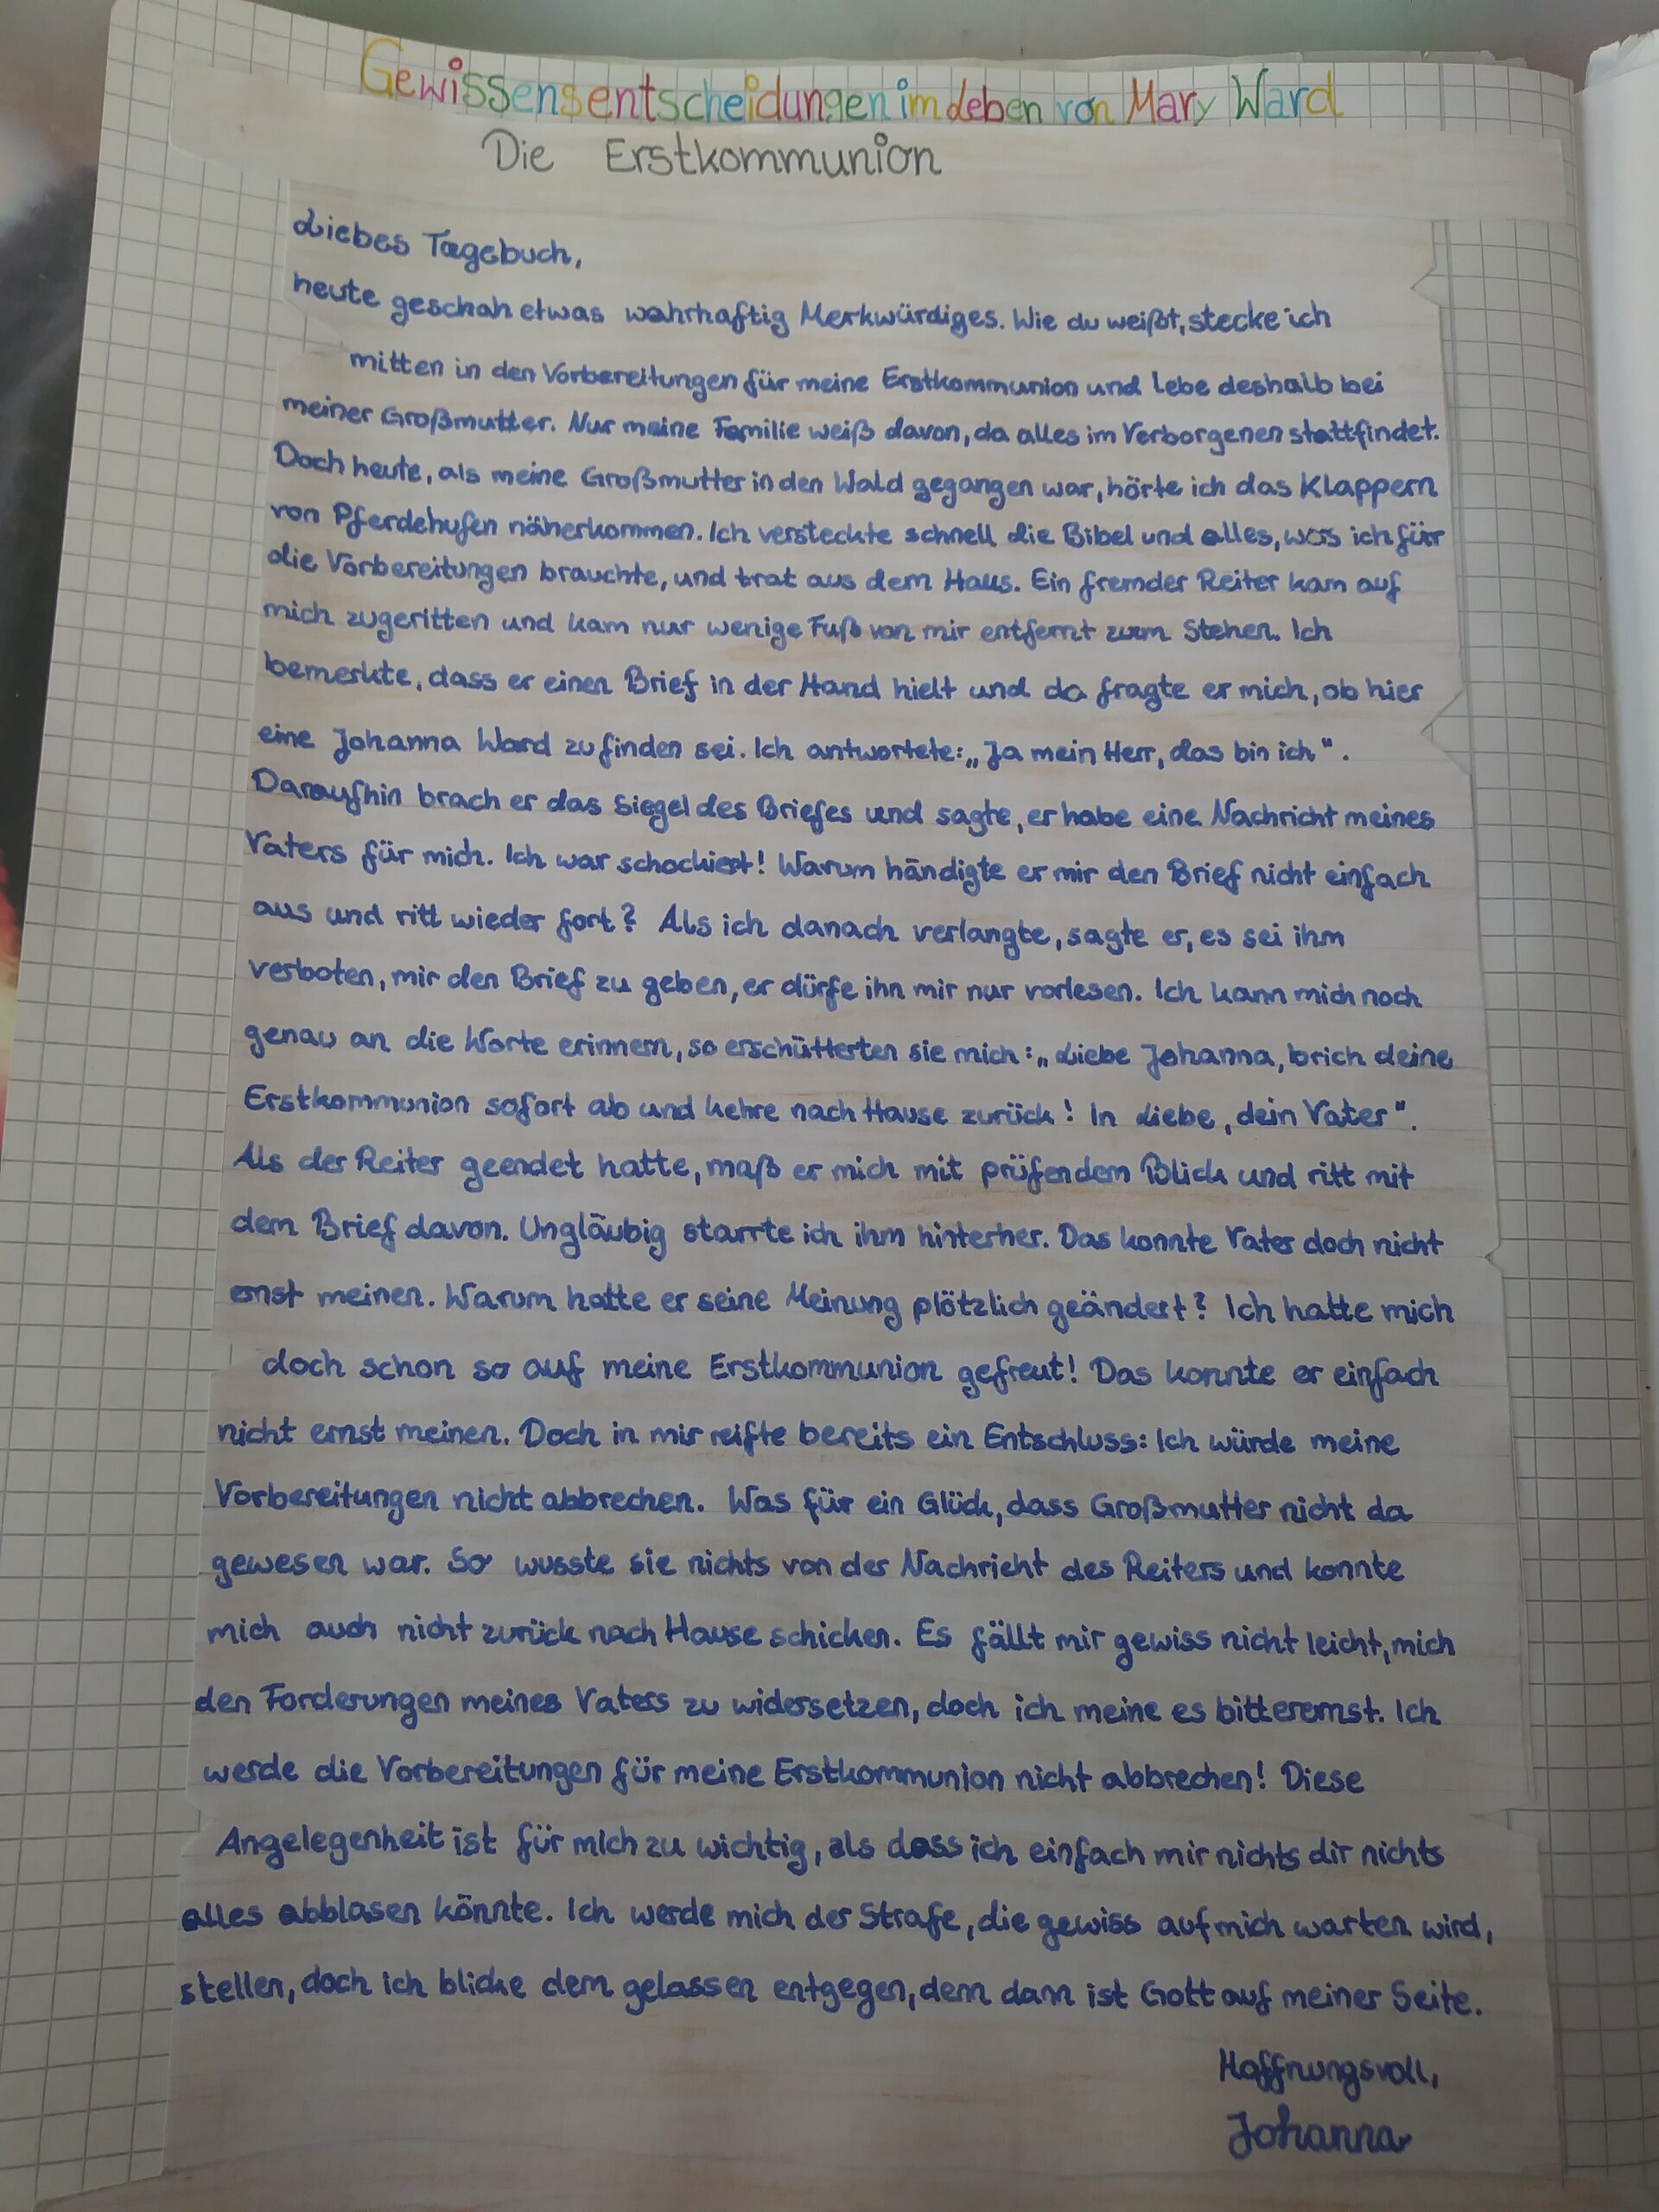 Gewissensentscheidungen im Leben von Mary Ward
Die Erstkommunion
Liebes Tagebuch,
heute geschah etwas wahrhaftig Merkwürdiges. Wie du weißt, stecke ich
mitten in den Vorbereitungen für meine Erstkommunion und lebe deshalb bei
meiner Großmutter. Nur meine Familie weiß davon, da alles im Verborgenen stattfindet.
Doch heute, als meine Großmutter in den Wald gegangen war, hörte ich das Klappern
von Pferdehufen näherkommen. Ich versteckte schnell die Bibel und alles, was ich für
die Vorbereitungen brauchte, und trat aus dem Haus. Ein fremder Reiter kam auf
mich zugeritten und kam nur wenige Fuß von mir entfernt zum Stehen. Ich
bemerkte, dass er einen Brief in der Hand hielt und da fragte er mich, ob hier
eine Johanna Ward zu finden sei. Ich antwortete: „Ja mein Herr, das bin ich".
Daraufhin brach er das Siegel des Briefes und sagte, er habe eine Nachricht meines
Vaters für mich. Ich war schockiert! Warum händigte er mir den Brief nicht einfach
aus und ritt wieder fort? Als ich danach verlangte, sagte er, es sei ihm
verboten, mir den Brief zu geben, er dürfe ihn mir nur vorlesen. Ich kann mich noch
genau an die Worte erinnern, so erschütterten sie mich: „Liebe Johanna, brich deine
Erstkommunion sofort ab und kehre nach Hause zurück! In Liebe, dein Vater".
Als der Reiter geendet hatte, maß er mich mit prüfendem Blick und ritt mit
dem Brief davon. Ungläubig starrte ich ihm hinterher. Das konnte Vater doch nicht
ernst meinen. Warum hatte er seine Meinung plötzlich geändert? Ich hatte mich
doch schon so auf meine Erstkommunion gefreut! Das konnte er einfach
nicht ernst meinen. Doch in mir reifte bereits ein Entschluss: Ich würde meine
Vorbereitungen nicht abbrechen. Was für ein Glück, dass Großmutter nicht da
gewesen war. So wusste sie nichts von der Nachricht des Reiters und konnte
mich auch nicht zurück nach Hause schicken. Es fällt mir gewiss nicht leicht, mich
den Forderungen meines Vaters zu widersetzen, doch ich meine es bitterernst. Ich
werde die Vorbereitungen für meine Erstkommunion nicht abbrechen! Diese
Angelegenheit ist für mich zu wichtig, als dass ich einfach mir nichts dir nichts
alles abblasen könnte. Ich werde mich der Strafe, die gewiss auf mich warten wird,
stellen, doch ich blicke dem gelassen entgegen, denn dann ist Gott auf meiner Seite.
Hoffnungsvoll,
Johanna